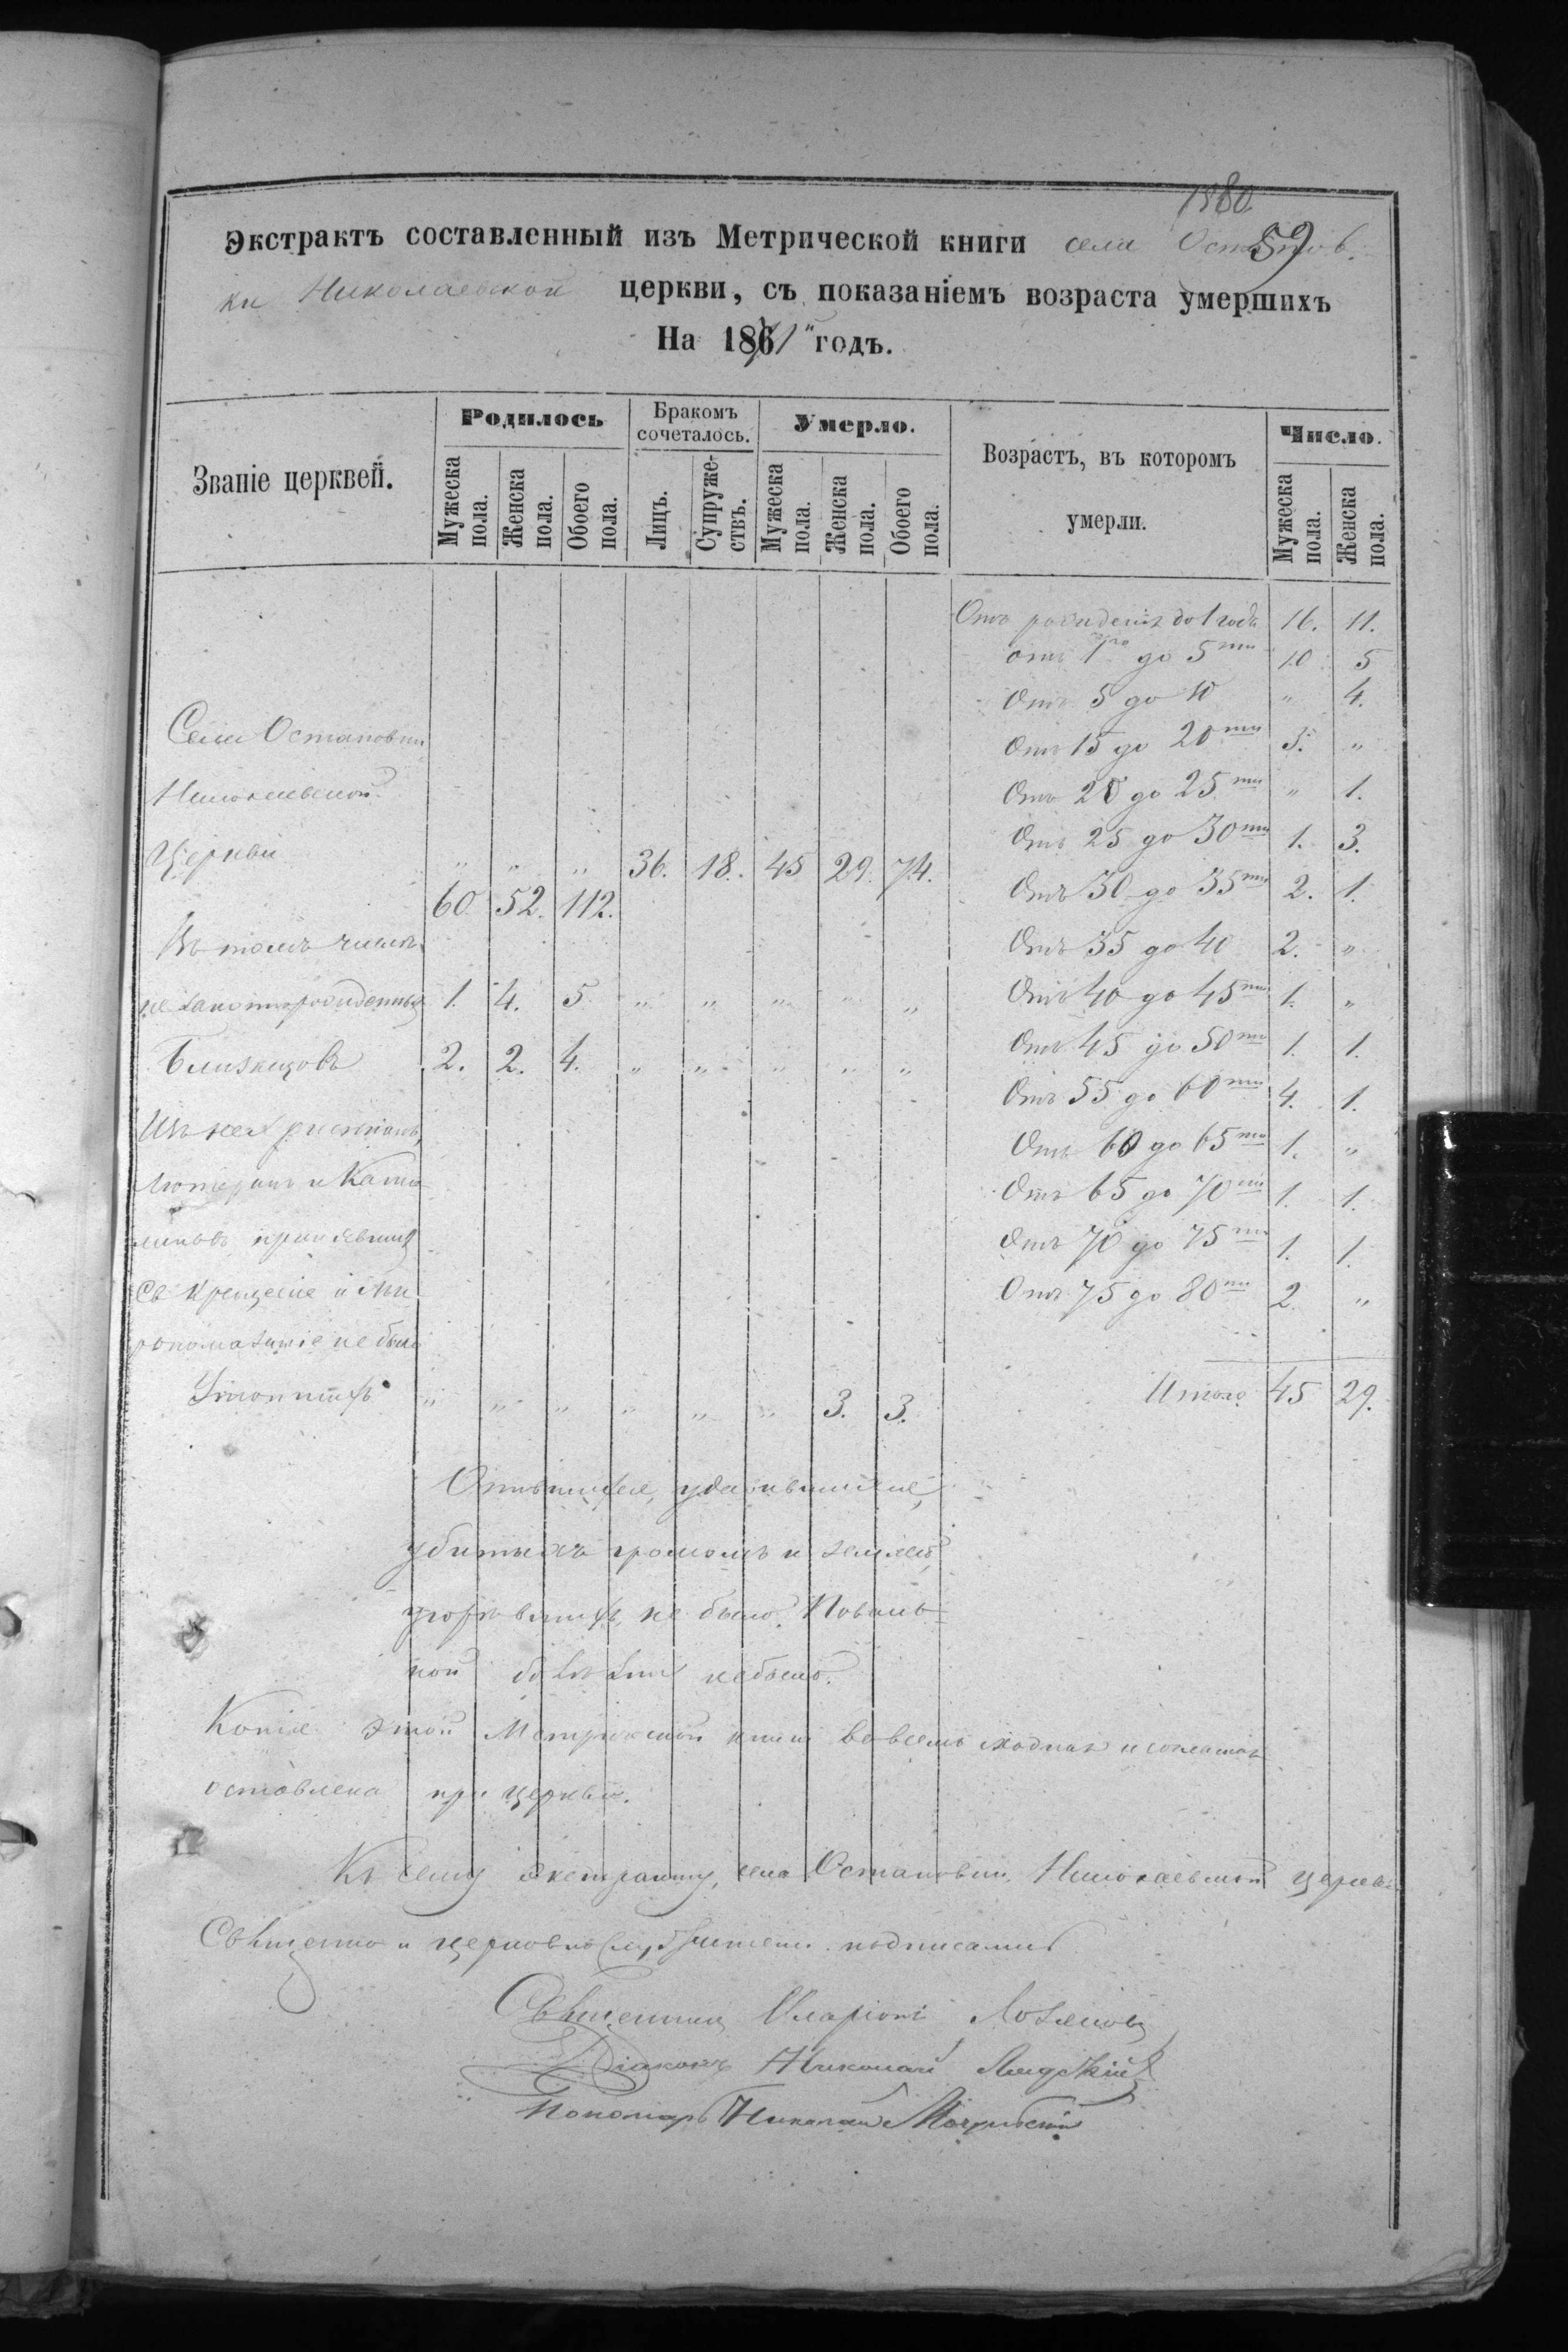 1880
59
Экстрактъ составленный изъ Метрической книги села Остапов-
ки Николаевской церкви, съ показаніемъ возраста умершихъ
На 1871 годъ.
Званіе церквей.
Родилось
Бракомъ сочеталось.
Умерло.
Возрастъ, въ которомъ умерли.
Число.
Мужеска пола.
Женска пола.
Обоего пола.
Лицъ.
Супружествъ.
Мужеска пола.
Женска пола.
Обоего пола.
Мужеска пола.
Женска пола.
Отъ рожденія до 1 года 16. 11.
отъ 1го до 5ти 10 5
Отъ 5 до 10 " 4.
Отъ 15 до 20ти 3. "
Отъ 20 до 25ти " 1.
Отъ 25 до 30ти 1. 3.
Отъ 30 до 35ти 2. 1.
Отъ 35 до 40 2. "
Отъ 40 до 45ти 1. "
Отъ 45 до 50ти 1. 1.
Отъ 55 до 60ти 4. 1.
Отъ 60 до 65ти 1. "
Отъ 65 до 70ти 1. 1.
Отъ 70 до 75ти 1. 1.
Отъ 75 до 80ти 2. "
Итого 45 29.
Села Остаповки
Николаевской
Церкви " " " 36. 18. 45 29. 74.
60. 52. 112.
Въ томъ числѣ
незаконнорожденныхъ 1. 4. 5 " " " " "
Близнецовъ 2. 2. 4. " " " " "
Изъ
Лютеранъ и Като-
ликовъ принявших
Св. Крещеніе и Ми-
ропомазаніе не было
" " " " " " 3. 3.
убитыхъ громомъ и землею
не было. Поваль-
ной болѣзни небыло.
Копія этой Метрической книги во всемъ сходная
оставлена при церкви.
Къ сему экстракту, села Остаповки Николаевской церкви
Священно и церковно служители подписались
Священникъ Иларіонъ
Діаконъ Николай
Пономарь Николай